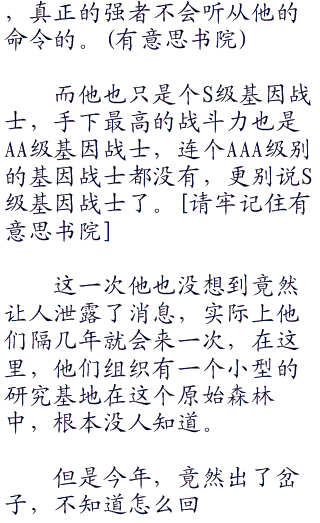 ，真正的强者不会听从他的
命令的。(有意思书院)
而他也只是个S级基因战
士，手下最高的战斗力也是
AA级基因战士，连个AAA级别
的基因战士都没有，更别说S
级基因战士了。[请牢记住有
意思书院]
这一次他也没想到竟然
让人泄露了消息，实际上他
们隔几年就会来一次，在这
里，他们组织有一个小型的
研究基地在这个原始森林
中，根本没人知道。
但是今年，竟然出了岔
子，不知道怎么回